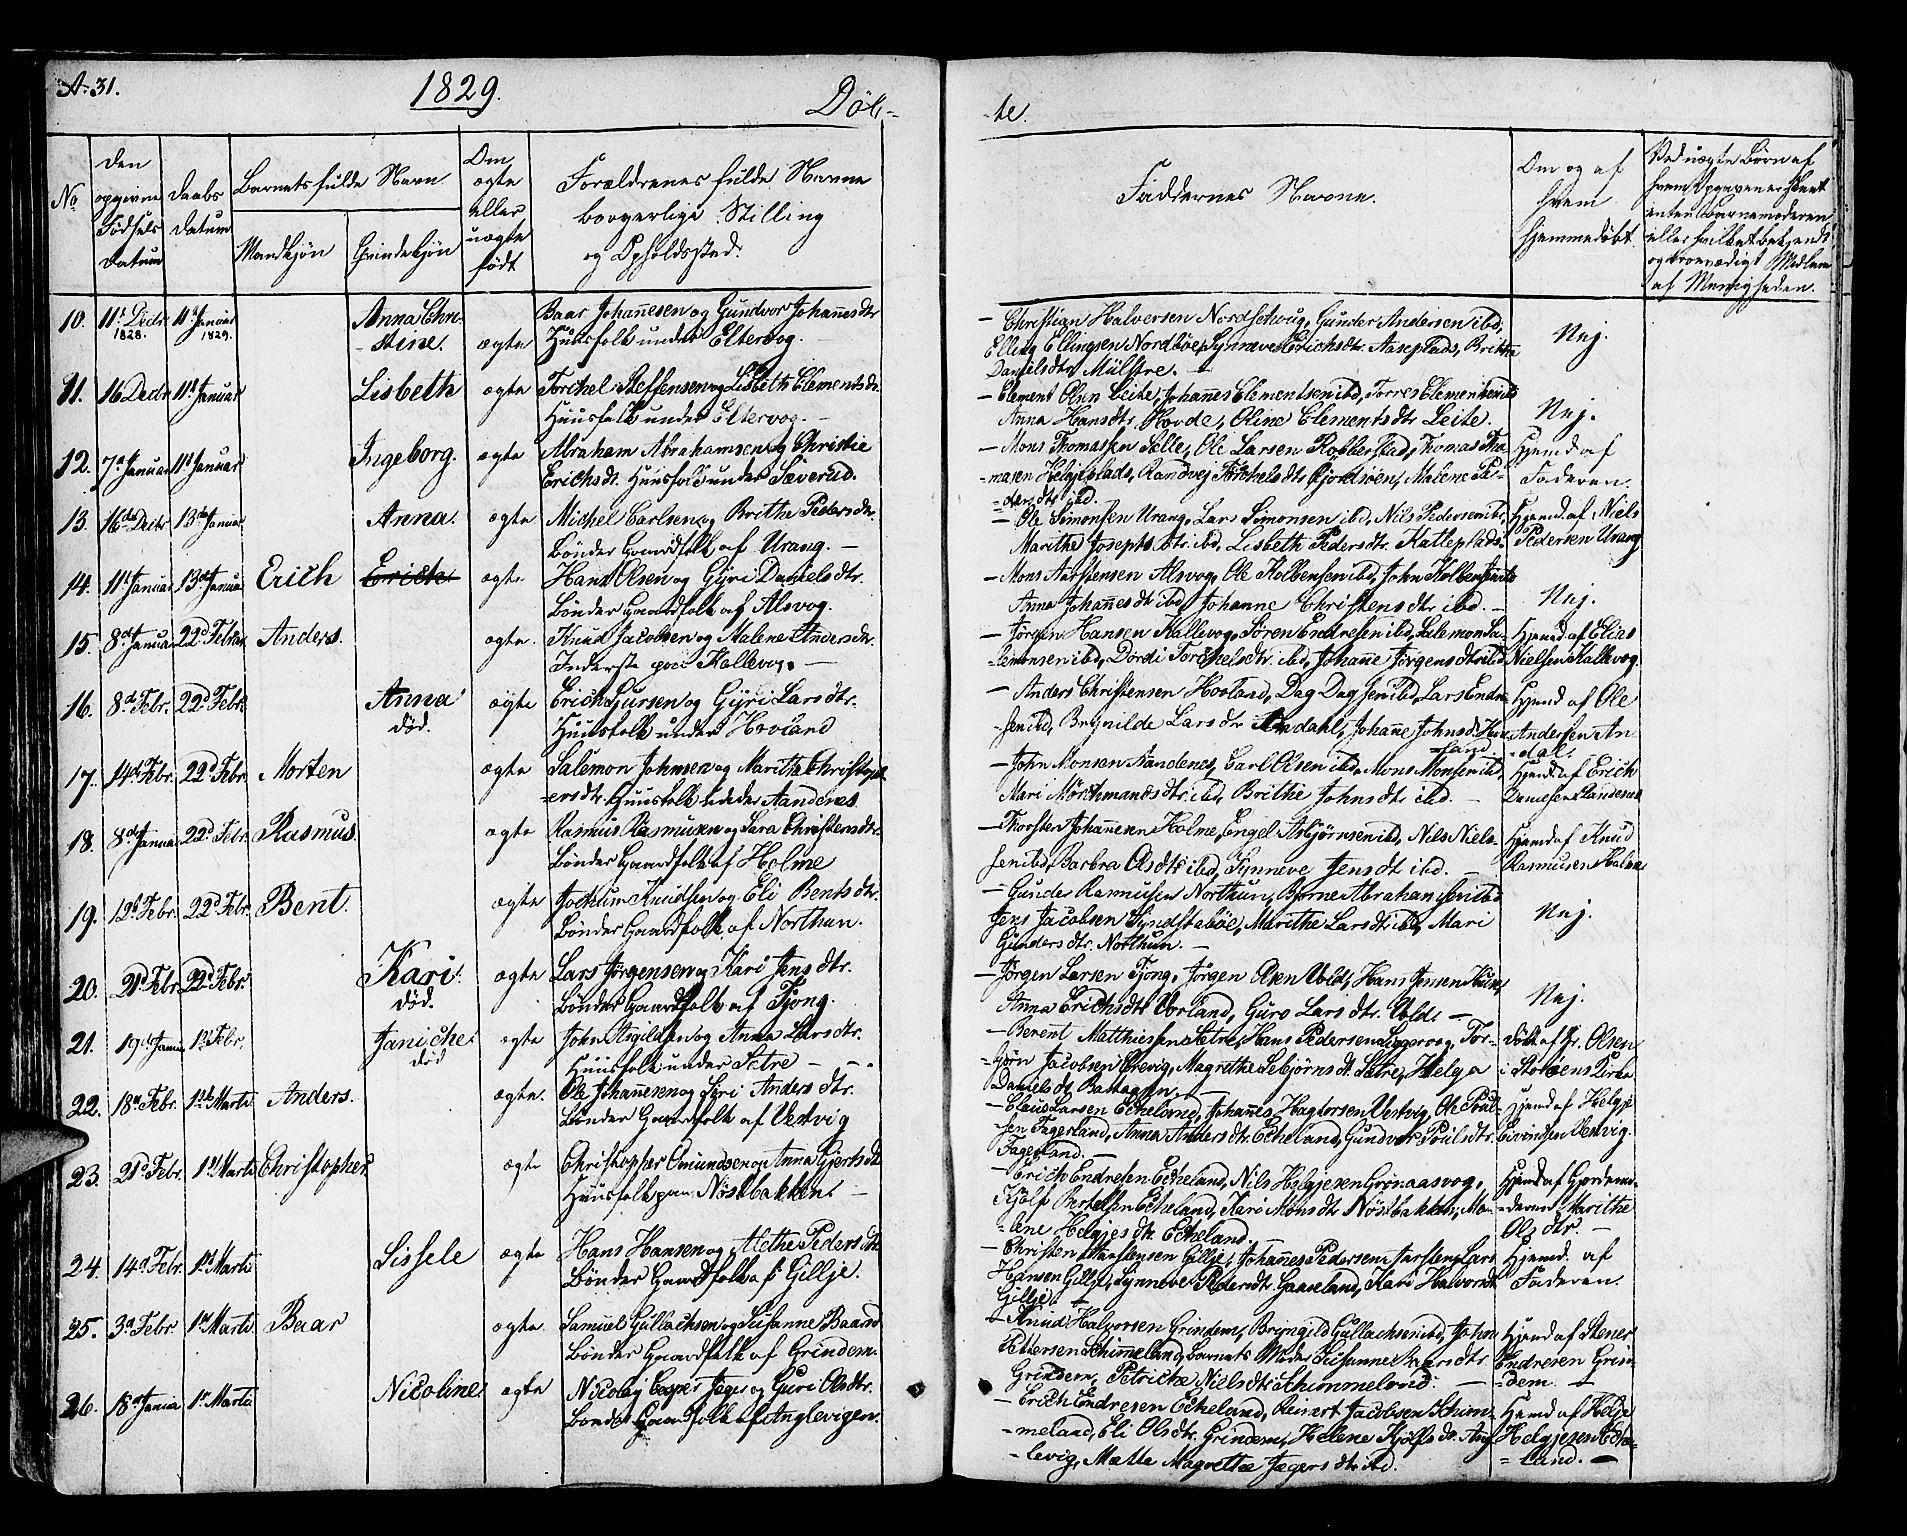 A. 31.
1829.
Døb-
te.
No
Den opgivne Fødsels Datum
Daabs Datum
Barnets fulde Navn
Mandkjøn
Qvindekjøn
Om ægte eller uægte født
Forældrenes fulde Navne
borgerlige Stilling
og Opholdssted.
Faddernes Navne.
Om og af
hvem
hjemmedøbt
Ved uægte Børn af
10. 11t Decbr 1828. 11t Januar 1829. Anna Chri-stine. ægte Baar Johannesen og Gundvor Johannesdtr
Huusfolk under Eltervog.
— Christian Halversen Nordschoug, Gunder Andersen ibd,
Elling Ellingsen Nordbøe, Synneve Erichsdtr Aaseplads, Brithe
Danielsdtr Mülstre. —
Nej.
11. 16 Decbr 11t Januar Lisbeth ægte Torchel Steffensen og Lisbeth Clementsdtr.
Huusfolk under Eltervog. —
— Clement Olsen Leite, Johannes Clementsen ibd, Torres Clementsen ibd
Anna Hansdtr Hovde, Oline Clementsdtr Leite.
Nej.
12. 7de Januar 11t Januar Ingeborg. ægte Abraham Abrahamsen og Christie
Erichsdt. Huusfolk under Sæverud.
— Mons Thomassen Selle, Ole Larsen Robberstad, Thomas Tho-
masen Helgeplads, Randvej Torchelsdtr Gjordsøen, Malene Pe-
dersdtr ibd.
Hjemd af
Faderen.
13. 16de Decbr 13de Januar Anna. ægte Michel Carlsen og Brithe Pedersdtr.
Bønder Gaardfolk af Urang. —
— Ole Simonsen Urang, Lars Simonsen ibd, Nils Pedersen ibd,
Marithe Josephsdtr. ibd, Lisbeth Pedersdtr. Katleplads.
Hjemd. af Niels
Pedersen Urang
14. 11t Januar 13de Januar Erich ægte Hans Olsen og Gjøri Danielsdtr.
Bønder Gaardfolk af Alsvog.
— Mons Aarstensen Alsvog, Ole Kolbensen ibd, John Kolbensen ibd
Anna Johannesdtr ibd, Johanne Christensdtr ibd. —
Nej.
15. 8de Januar 22de Febr Anders. ægte. Knud Jacobsen og Malene Andersdtr.
Inderste paa Kallevog. —
— Jørgen Hansen Kallevog, Søren Endresen ibd, Salemon Sa-
lemonsen ibd, Dordi Torchelsdtr. ibd, Johanne Jørgensdtr ibd.
Hjemd af Elias
Nielsen Kallevog.
16. 8de Febr. 22de Febr. Anna død. ægte Erich Sjursen og Gjøri Larsdtr.
Huusfolk under Hovland
— Anders Christensen Hovland, Dag Dagsen ibd, Lars Endre-
sen ibd, Brynilde Larsdtr Andahl, Johanne Johnsd. Hov-
land.
Hjemd af Ole
Andersen An-
dal.
17. 14de Febr. 22de Febr. Morten ægte Salemon Johnsen og Marithe Christoph-
ersdtr. Huusfolk under Aandenes
— John Monsen Aandenes, Carl Olsen ibd, Mons Monsen ibd,
Mari Mørchmandsdtr. ibd, Brithe Johnsdtr ibd. —
Hjemd af Erich
Danielsen Aandenes
18. 8de Januar 22de Febr. Rasmus. ægte Rasmus Rasmusen og Sara Christensdtr.
Bønder Gaardfolk af Holme
— Thorsten Johannesen Holme, Engel Asbjørnsen ibd, Nils Niels-
sen ibd, Barbra Olsdtr ibd, Synneve Jensdt ibd. —
Hjemd af Knud
Rasmusen Holme
19. 12te Febr. 22de Febr. Bent. ægte Jochum Knudsen og Eli Bentsdtr.
Bønder Gaardfolk af Northun.
— Gunder Rasmusen Northun, Bjorne Abrahamsen ibd
Jens Jacobsen Syndstabøe, Marithe Larsdtr ibd, Mari
Gundersdtr. Northun. —
Nej.
20. 21de Febr. 22de Febr. Kari. død. ægte Lars Jørgensen og Kari Jensdtr.
Bønder Gaardfolk af Tjong.
— Jørgen Larsen Tjong, Jørgen Olsen Vold, Hans Jensen
Anna Erichsdtr Vorland, Guro Larsdtr. Vold. —
Nej.
21. 19de Januar 1ste Febr. Janiche. død ægte John Asgildsen og Anna Larsdtr.
Huusfolk under Setre —
— Berent Matthiesen Setre, Hans Pedersen Siggervog, Tor-
bjørn Jacobsen Grevig, Magrethe Sebjørnsdt. Setre, Helga
Danielsdt. —
Døbt af Hr. Olsen
i Stordøens Kirke
22. 18de Febr. 1ste Marti Anders. ægte. Ole Johannesen og Syri Andersdtr.
Bønder Gaardfolk af Vestvig
— Claus Larsen Echeland, Johannes Hagtorsen Vestvig, Ole Poul-
sen Fagerland, Anna Andersdtr Echeland, Gundvor Poulsdtr.
Fagerland. —
Hjemd af Helgje
Eivindsen Vestvig.
23. 21de Febr. 1ste Marti Christopher ægte Christopher Omundsen og Anna Gjertsdt
Huusfolk paa Nøstbakken. —
— Erich Endresen Echeland, Nils Helgjesen Grønaasvog,
Kjølf Bertelsen Echeland, Kari Monsdtr Nøstbakken, Ma-
lene Helgjesdtr. Echeland.
Hjemd af Gjordemo-
deren Marithe
Olsdtr. —
24. 14de Febr. 1ste Marti Sissele ægte Hans Hansen og Alethe Pedersdtr.
Bønder Gaardfolk af Gillje.
— Christen Aarstensen Gillje, Johannes Pedersen, Lars
Hansen Gillje, Synneve Pedersdtr. Gaaseland, Kari Halvorsdtr
Gillje.
Hjemd. af
Faderen.
25. 3de Febr. 1ste Marti Baar ægte. Samuel Gullachsen og Susanne Baarsd
Bønder Gaardfolk af Grindem.
— Knud Halvorsen Grindem, Bryngild Gullachsen ibd, John
Pettersen Schimmeland, barnets Moder Susanne Baarsdtr.
Grindem, Petriche Nielsdtr Schimmeland. —
Hjemd af Stener
Endresen Grin-
dem. —
26. 18de Januar 1ste Marti Nicoline. ægte Nicolaj Casper Jæger og Guri Olsdtr.
Bønder Gaardfolk af Anglevigen.
— Erich Endresen Echeland, Reinert Jacobsen Schim-
meland, Eli Olsdtr. Grindem, Helene Kjølfsdtr. Ang-
levig, Mætte Magrethe Jægersdtr ibd.
Hjemd af Helje
Helgjesen Eche-
land. —